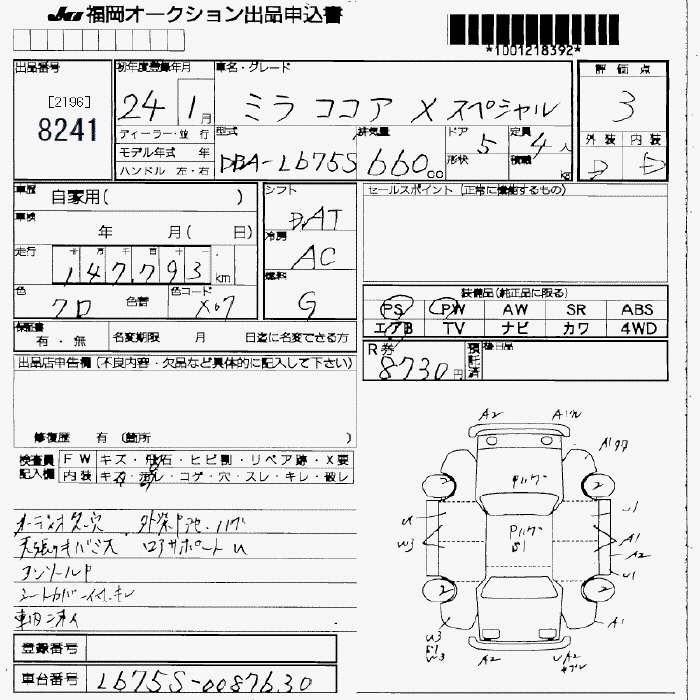 JU 福岡オークション出品申込書
*1001218392*
出品番号
[2196]
8241
初年度登録年月
24 1月
車名・グレード
ミラ ココア X スペシャル
評価点
3
外装 内装
D D
ディーラー・並行
モデル年式 年
ハンドル 左・右
型式
DBA-L675S
排気量
660cc
ドア
5
形状
定員
4人
積載
kg
車歴
自家用( )
車検
年 月( 日)
走行
147,793 km
色
クロ
色替
色コード
X07
シフト
D,AT
冷房
AC
燃料
G
セールスポイント (正常に機能するもの)
装備品(純正品に限る)
PS PW AW SR ABS
エアB TV ナビ カワ 4WD
保証書
有・無
名変期限 月 日迄に名変できる方
R券
8730円
預託済
後日品
出品店申告欄 (不良内容・欠品など具体的に記入して下さい)
修復歴 有 (箇所 )
検査員記入欄
FW キズ・飛石・ヒビ割・リペア跡・X要
内装 キズ・汚れ・コゲ・穴・スレ・キレ・破レ
天張りキバミ大 ロアサポートU
コンソールP
A2 A1
A1
P
U
W3
U1
A1
A2
W1
2 2
2 2
S1
U3
W3
A2
A1
登録番号
車台番号
L675S-0087630